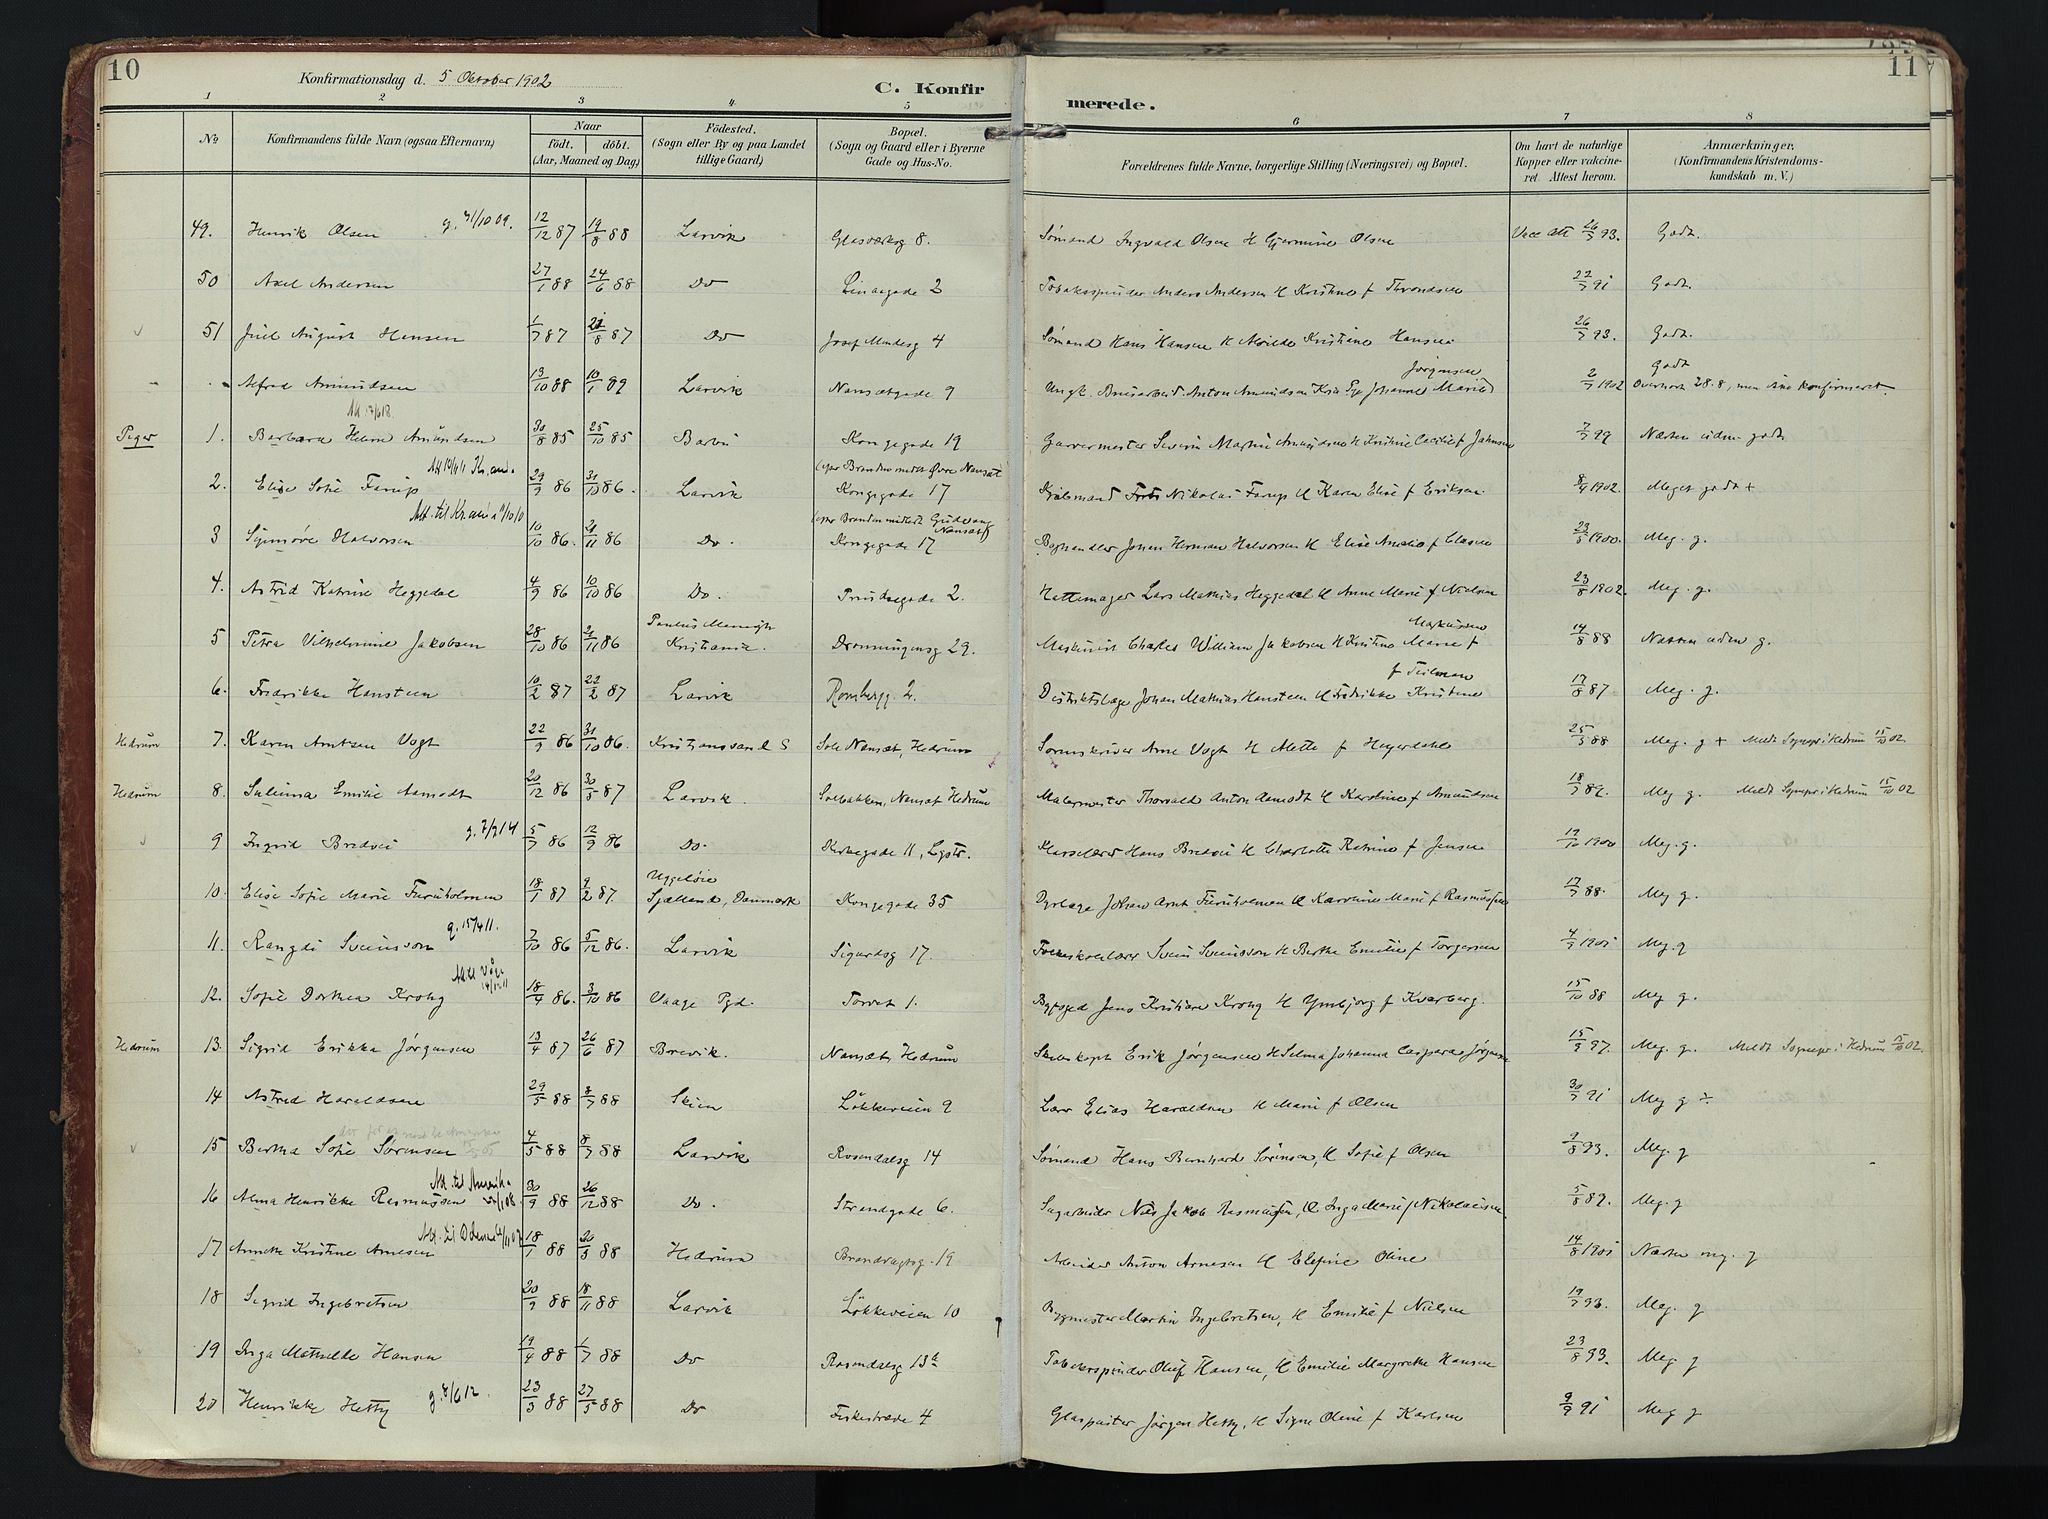 10
Konfirmationsdag d. 5 Oktober 1902
C. Konfirmerede.
11
1 2 3 4 5 6 7 8
No
Konfirmandens fulde Navn (ogsaa Efternavn)
Naar
födt. döbt.
(Aar, Maaned og Dag)
Födested.
(Sogn eller By og paa Landet
tillige Gaard)
Bopæl.
(Sogn og Gaard eller i Byerne
Gade og Hus-No.
Forældrenes fulde Navne, borgerlige Stilling (Næringsvei) og Bopæl.
Om havt de naturlige
Kopper eller vakcine-
ret Attest herom.
Anmærkninger.
(Konfirmandens Kristendoms-
kundskab m. V.)
49. Henrik Olsen g. 31/10 09. 12/12 87 19/8 88 Larvik Glasværksg 8. Sømand Ingvald Olsen & Gjermine Olsen Vacc att 26/7 93. Godt.
50 Axel Andersen 27/1 88 24/6 88 Do Linaegade 2 Tobaksspinder Anders Andersen & Kristine f Throndsen 22/7 91 Godt.
51 Juel August Hansen 1/7 87 21/8 87 Do Josef Mundesg 4 Sømand Hans Hansen & Alvilde Kristiane Hansen 26/7 93. Godt.
Alfred Amundsen 13/10 88 10/1 89 Larvik Nansetgade 9 Ungk. Brusarbeid. Anton Amundsen Pge Johanne Marie Jørgensen 2/7 1902 Godt Overhørt 28.8, men ikke konfirmeret.
Piger 1. Barbara Helene Amundsen 30/8 85 25/10 85 Barbu Kongegade 19 Garvermester Severin Martin Amundsen & Kristine Cecilie f Johnsen 7/7 99 Næsten uden godt
2. Elise Sofie Farup Att 19/4 11 Kr.ania 29/9 86 31/10 86. Larvik (efter Branden midlt Øvre Nanset Kongegade 17 Kjøbmand Nikolai Farup & Karen Elise f Eriksen 8/9 1902. Meget godt +
3 Synnøve Halvorsen Att. til Kr.ania 10/10 10/10 86. 21/11 86 Do. (efter Branden midlert Gudvang Nanset Kongegade 17 Boghandler Johan Herman Halvorsen & Elise Amalie f Clasen 23/5 1900. Meg. g.
4. Astrid Katrine Heggedal 4/9 86 10/10 86 Do. Prindsegade 2. Hattemager Lars Mathias Heggedal & Anne Marie f Nielsen 23/8 1902. Meg. g.
5 Petra Vilhelmine Jakobsen 28/10 86 21/11 86 Paulus Menigh Kristiania. Dronningensg 29. Maskinist Charles William Jakobsen & Kristine Marie f Markussen 14/8 88 Næsten uden g.
6. Fredrikke Hansteen 10/2 87 22/2 87 Larvik Romberg. 2. Distriktslæge Johan Mathias Hansteen & Fredrikke Kristine f Teilman 17/8 87 Meg. g.
Hedrum 7. Karen Arntsen Vogt 22/9 86 31/10 86. Kristianssand S Sole Nanset, Hedrum Sorenskriver Arne Vogt & Mette f Heyerdahl 25/3 88 Meg. g + Meldt Sognepr i Hedrum 15/10 02
Hedrum 8. Emilie Aamodt 20/12 86 30/5 87 Larvik. Solbakken, Nanset Hedrum Malermester Thorvald Anton Aamodt & Karoline f Amundsen 18/7 89. Meg g. Meldt Sognepr i Hedrum 15/10 02
9 Ingrid Bredvei g. 7/2 14 5/7 86 12/9 86 Do. Kirkegade 11, Lystr. Klasselærer Hans Bredvei & Charlotte Katrine f Jensen 19/10 1900 Meg. g.
10. Elise Sofie Marie Furuholmen 18/1 87 9/2 87. Uggeløse Sjælland, Danmark Kongegade 35 Dyrlæge Johan Arnt Furuholmen & Karoline Marie f Rasmussen 17/7 88. Meg g.
11. Rangdi Sveinsson g. 15/4 11. 7/10 86 5/12 86. Larvik Sigurdsg 17. Folkeskolelærer Svein Sveinsson & Berthe Emilie f Torgersen 4/7 1901 Meg. g
12. Sofie Dorthea Krohg Att Våge 14/12 11 18/4 86. 3/10 86 Vaage Pgd. Torvet 1. Byfoged Jens Kristian Krohg & Ymbjorg f Kvarberg. 15/10 88 Meg g.
Hedrum 13. Sigrid Erikka Jørgensen 13/4 87 26/6 87 Brevik. Nanset, Hedrum Skibskapt Erik Jørgensen & Selma Johanna Caspara Jørgensen 15/9 97. Meg. g. Meldt Sognepr i Hedrum 15/10 02.
14 Astrid Haraldsen 29/5 88 8/7 88 Skien Løkkeveien 9 Lærer Elias Haraldsen & Marie f Olsen 30/7 91 Meg g ÷
15 Bertha Sofie Sørensen 4/5 88 8/7 88 Larvik Rosendalsg 14 Sømand Hans Bernhard Sørensen, & Sofie f Olsen 9/8 93. Meg. g
16 Alma Henrikke Rasmussen Att. til Amerika 08. 30/9 88 26/12 88 Do. Strandgade 6. Sagarbeider Nils Jakob Rasmussen, & Inga Marie f Nikolaisen. 5/8 89. Meg. g
17 Annette Kristine Arnesen 18/1 88 20/5 88 Hedrum Brandvagtsg. 19 Arbeider Anton Arnesen & Elefine Oline 14/8 1901 Næsten mg. g
18 Sigrid Ingebretsen 20/9 88 18/11 88 Larvik Løkkeveien 10 Bygmester Martin Ingebretsen, & Emilie f Nielsen 19/7 93. Meg. g
19 Inga Mathilde Hansen 19/4 88 1/7 88 Do Rosendalsg 13b Tobakspinder Oluf Hansen, & Emilie Margrethe Hansen 23/8 93. Meg g
20 Henrikke Hetty g. 8/6 12. 23/3 88 27/5 88 Do Fiskestræde 4 Glaspuster Jørgen Hetty, & Signe Oline f Karlsen 9/9 91 Meg g